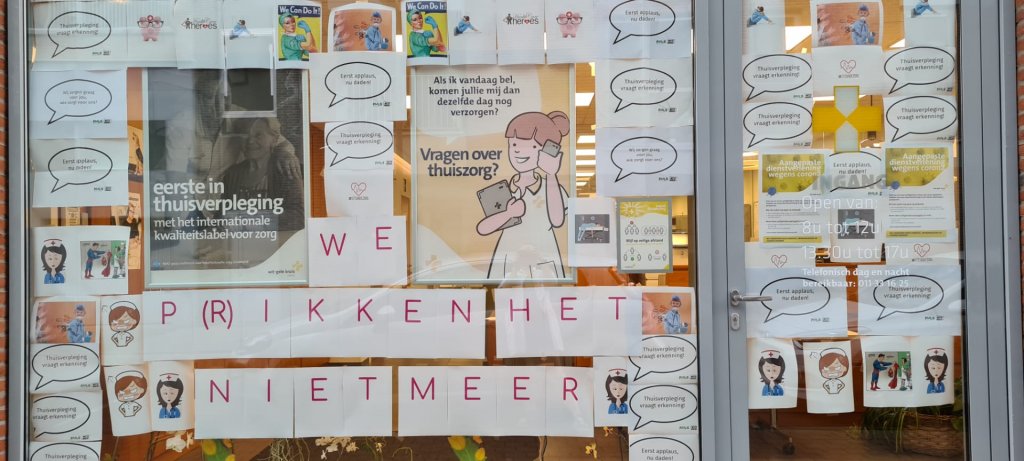 Thuisverpleging
vraagt erkenning!
heroes
We Can Do It!
We Can Do It!
Eerst applaus,
nu daden!
Wij zorgen graag
voor jou,
wie zorgt voor ons?
Eerst applaus,
nu daden!
Eerst applaus,
nu daden!
Thuisverpleging
vraagt erkenning!
eerste in
thuisverpleging
met het internationale
kwaliteitslabel voor zorg
wit-gele kruis
Als ik vandaag bel,
komen jullie mij dan
dezelfde dag nog
verzorgen?
Vragen over
thuiszorg?
Eerst applaus,
nu daden!
Wij zorgen graag
voor jou,
wie zorgt voor ons?
Blijf op veilige afstand
WE
P(R)IKKEN HET
NIET MEER
Thuisverpleging
vraagt erkenning!
Thuisverpleging
vraagt erkenning!
Thuisverpleging
Thuisverpleging
vraagt erkenning!
Thuisverpleging
vraagt erkenning!
Eerst applaus,
nu daden!
Thuisverpleging
vraagt erkenning!
Eerst applaus,
nu daden!
Thuisverpleging
vraagt erkenning!
Thuisverpleging
vraagt erkenning!
Aangepaste
dienstverlening
wegens corona
Eerst applaus,
nu daden!
Aangepaste
dienstverlening
wegens corona
INGANG
Open van:
8u tot 12u
13.30u tot 17u
Telefonisch dag en nacht
bereikbaar:
Eerst applaus,
nu daden!
Thuisverpleging
vraagt erkenning!